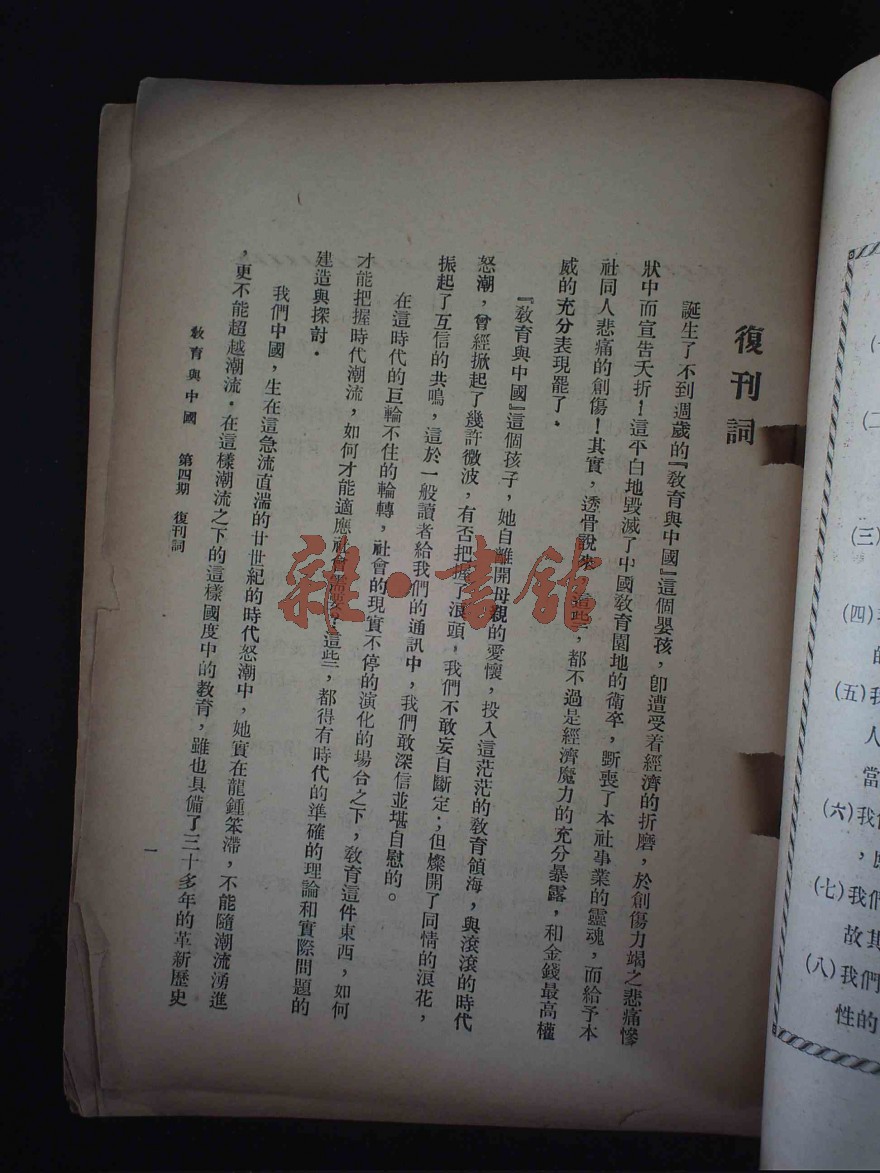 復刊詞
誕生了不到週歲的『教育與中國』這個嬰孩，卽遭受着經濟的折磨，於創傷力竭之悲痛慘
狀中而宣告夭折！這平白地毀滅了中國教育園地的衛卒，斲喪了本社事業的靈魂，而給予本
社同人悲痛的創傷！其實，透骨說來，這些，都不過是經濟魔力的充分暴露，和金錢最高權
威的充分表現罷了．
『教育與中國』這個孩子，她自離開母親的愛懷，投入這茫茫的教育領海，與滾滾的時代
怒潮，曾經掀起了幾許微波，有否把握了浪頭，我們不敢妄自斷定；但燦開了同情的浪花，
振起了互信的共鳴，這於一般讀者給我們的通訊中，我們敢深信並堪自慰的。
在這時代的巨輪不住的輪轉，社會的現實不停的演化的場合之下，教育這件東西，如何
才能把握時代潮流，如何才能適應社會需要？這些，都得有時代的準確的理論和實際問題的
建造與探討．
我們中國，生在這急流直湍的廿世紀的時代怒潮中，她實在龍鍾笨滯，不能隨潮流湧進
，更不能超越潮流．在這樣潮流之下的這樣國度中的教育，雖也具備了三十多年的革新歷史
教育與中國 第四期 復刊詞
一
雜·書館
(三)
(四)
的
(五)我
人
當
(六)我們
(七)我們
故其
(八)我們
性的